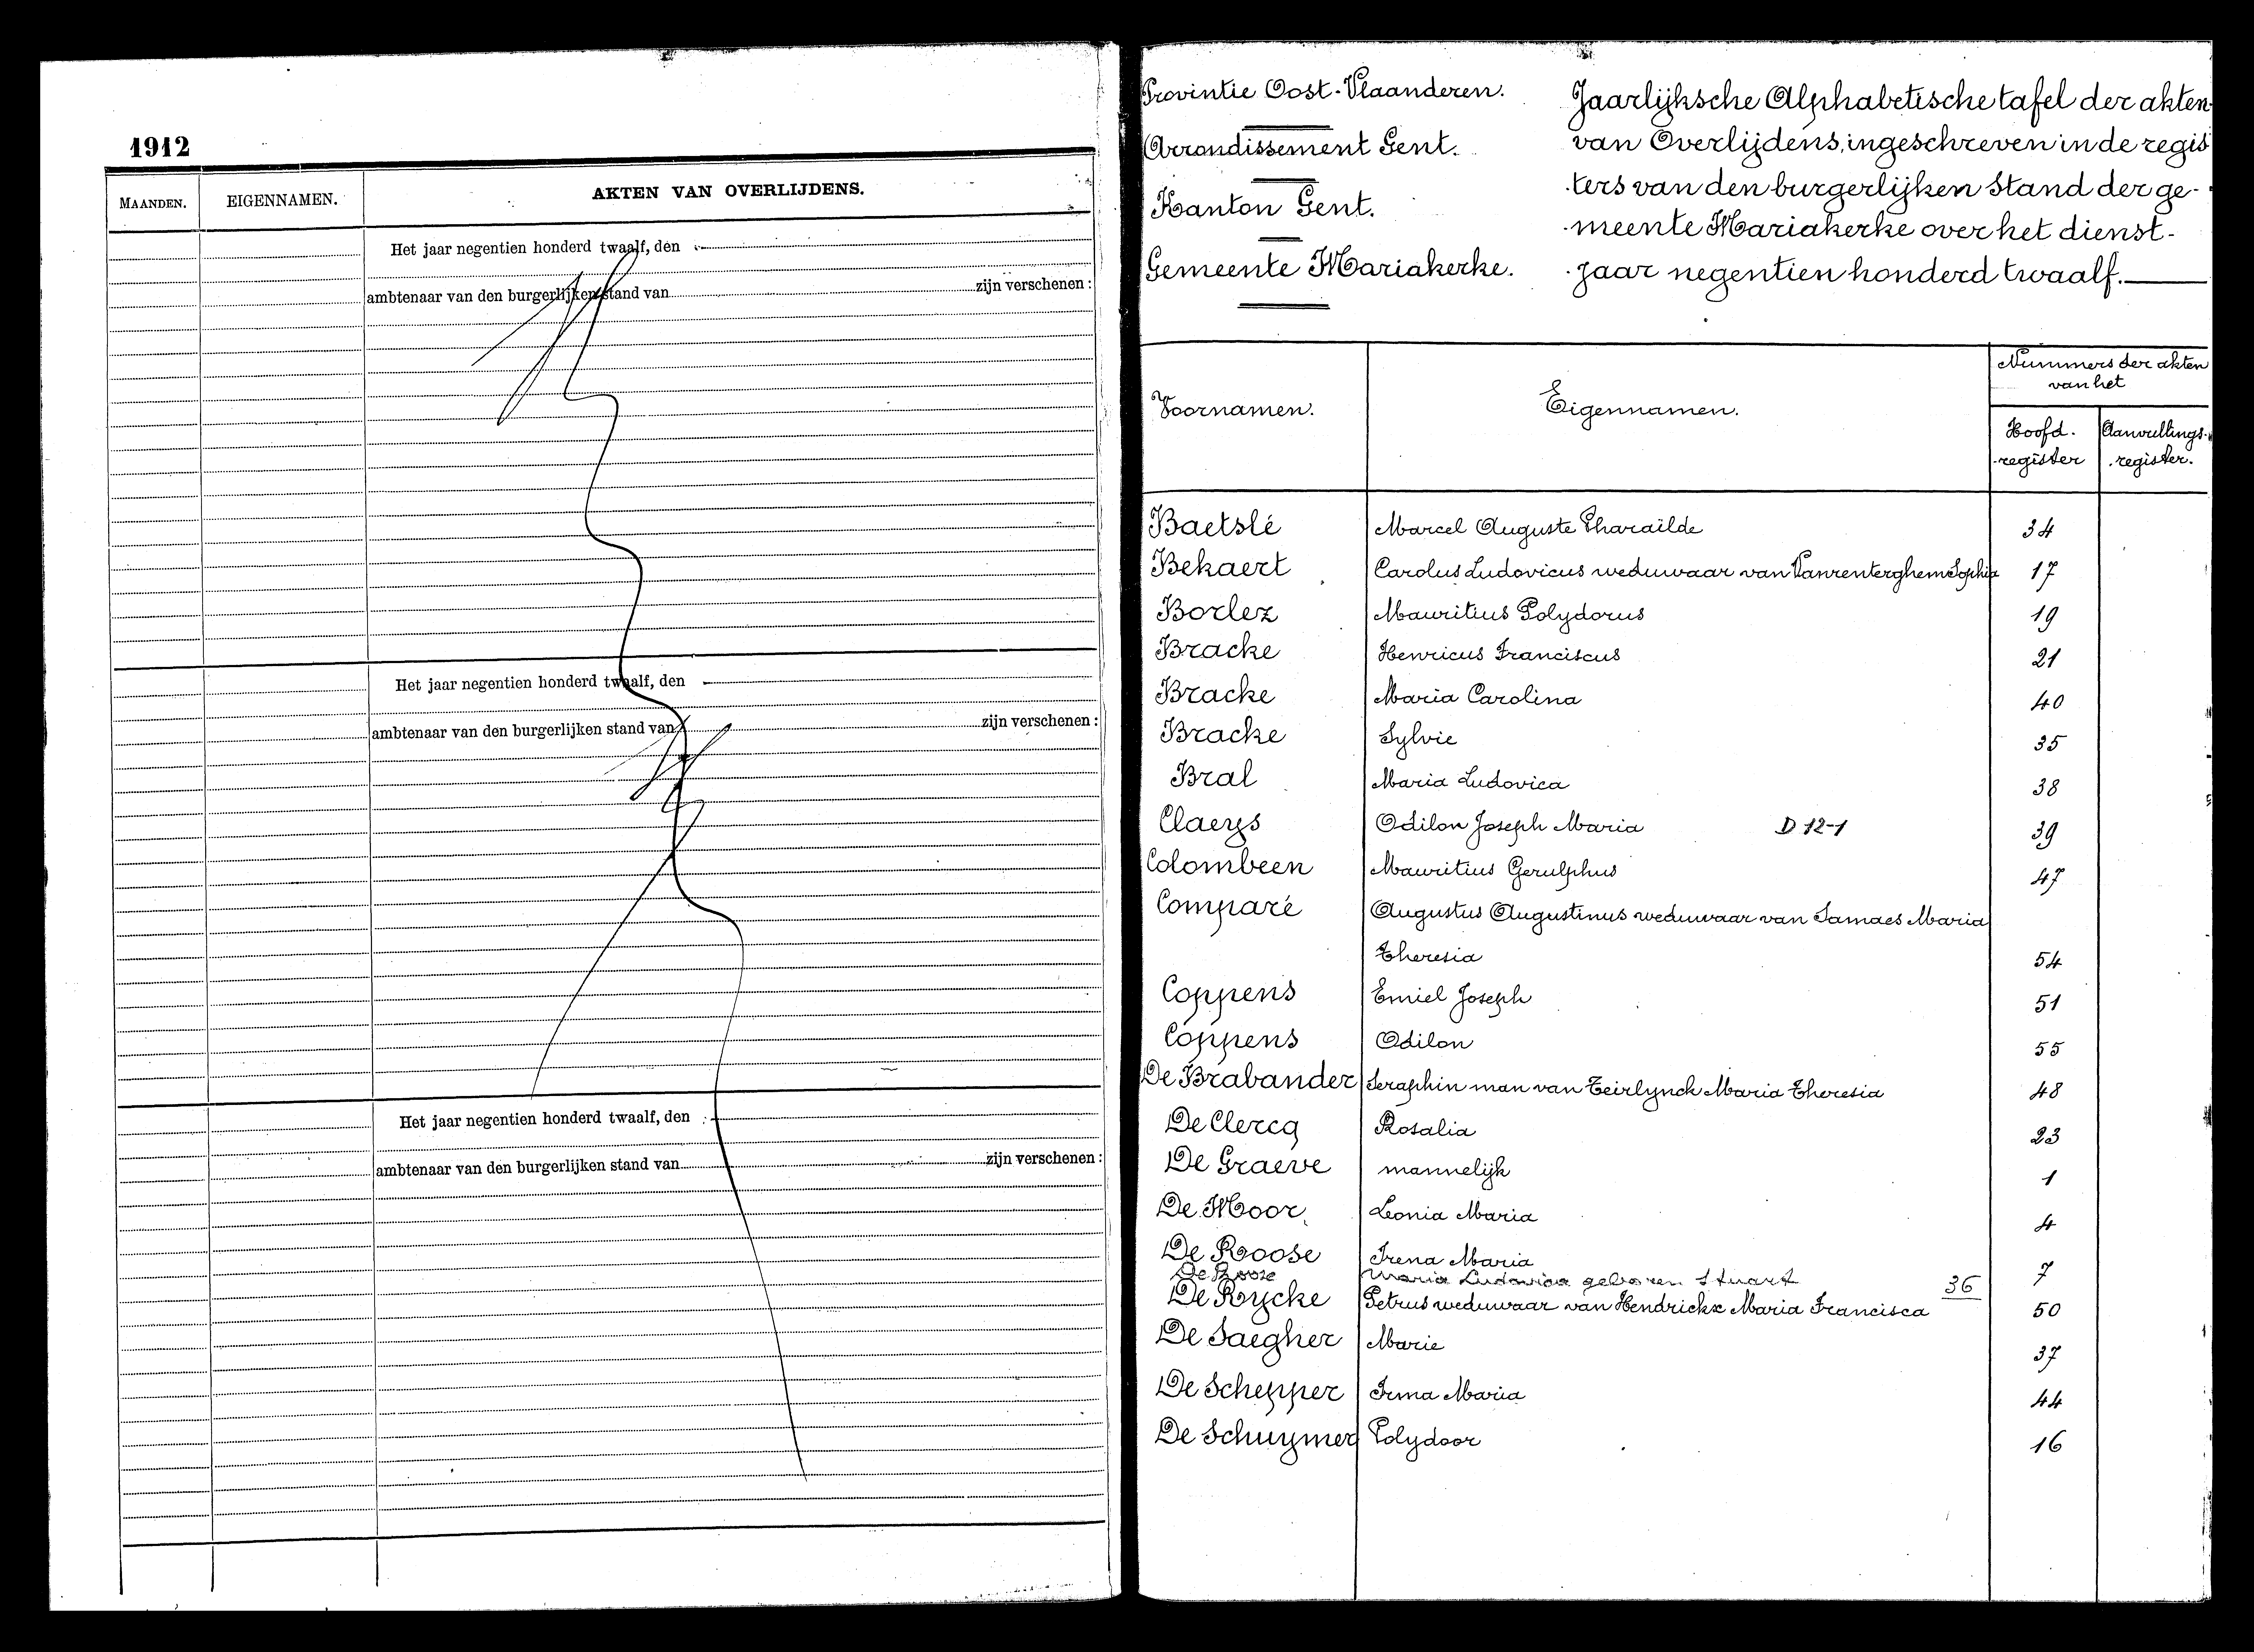 1912
MAANDEN. EIGENNAMEN. AKTEN VAN OVERLIJDENS.
Het jaar negentien honderd twaalf, den
ambtenaar van den burgerlijken stand van zijn verschenen :
Het jaar negentien honderd twaalf, den
ambtenaar van den burgerlijken stand van zijn verschenen :
Het jaar negentien honderd twaalf, den
ambtenaar van den burgerlijken stand van zijn verschenen :
Provintie Oost-Vlaanderen.
Arrondissement Gent.
Kanton Gent.
Gemeente Mariakerke.
Jaarlijksche Alphabetische tafel der akten
van Overlijdens, ingeschreven in de regis
-ters van den burgerlijken Stand der ge-
-meente Mariakerke over het dienst-
-jaar negentien honderd twaalf.
Voornamen. Eigennamen. Nummers der akten
van het
Hoofd- Aanvullings-
-register -register.
Baetslé Marcel Auguste Pharaïlde 34
Bekaert Carolus Ludovicus weduwaar van Vanrenterghem Sophia 17
Borlez Mauritius Polydorus 19
Bracke Henricus Franciscus 21
Bracke Maria Carolina 40
Bracke Sylvie 35
Bral Maria Ludovica 38
Claeys Odilon Joseph Maria D 12-1 39
Colombeen Mauritius Gerulphus 47
Comparé Augustus Augustinus weduwaar van Samaes Maria
Theresia 54
Coppens Emiel Joseph 51
Coppens Odilon 55
De Brabander Seraphin man van Teirlynck Maria Theresia 48
De Clercq Rosalia 23
De Graeve mannelijk 1
De Moor Leonia Maria 4
De Roose Irena Maria 7
De Roose Maria Ludovica geboren Stuart 36
De Rycke Petrus weduwaar van Hendrickx Maria Francisca 50
De Saegher Marie 37
De Schepper Irma Maria 44
De Schuymer Polydoor 16